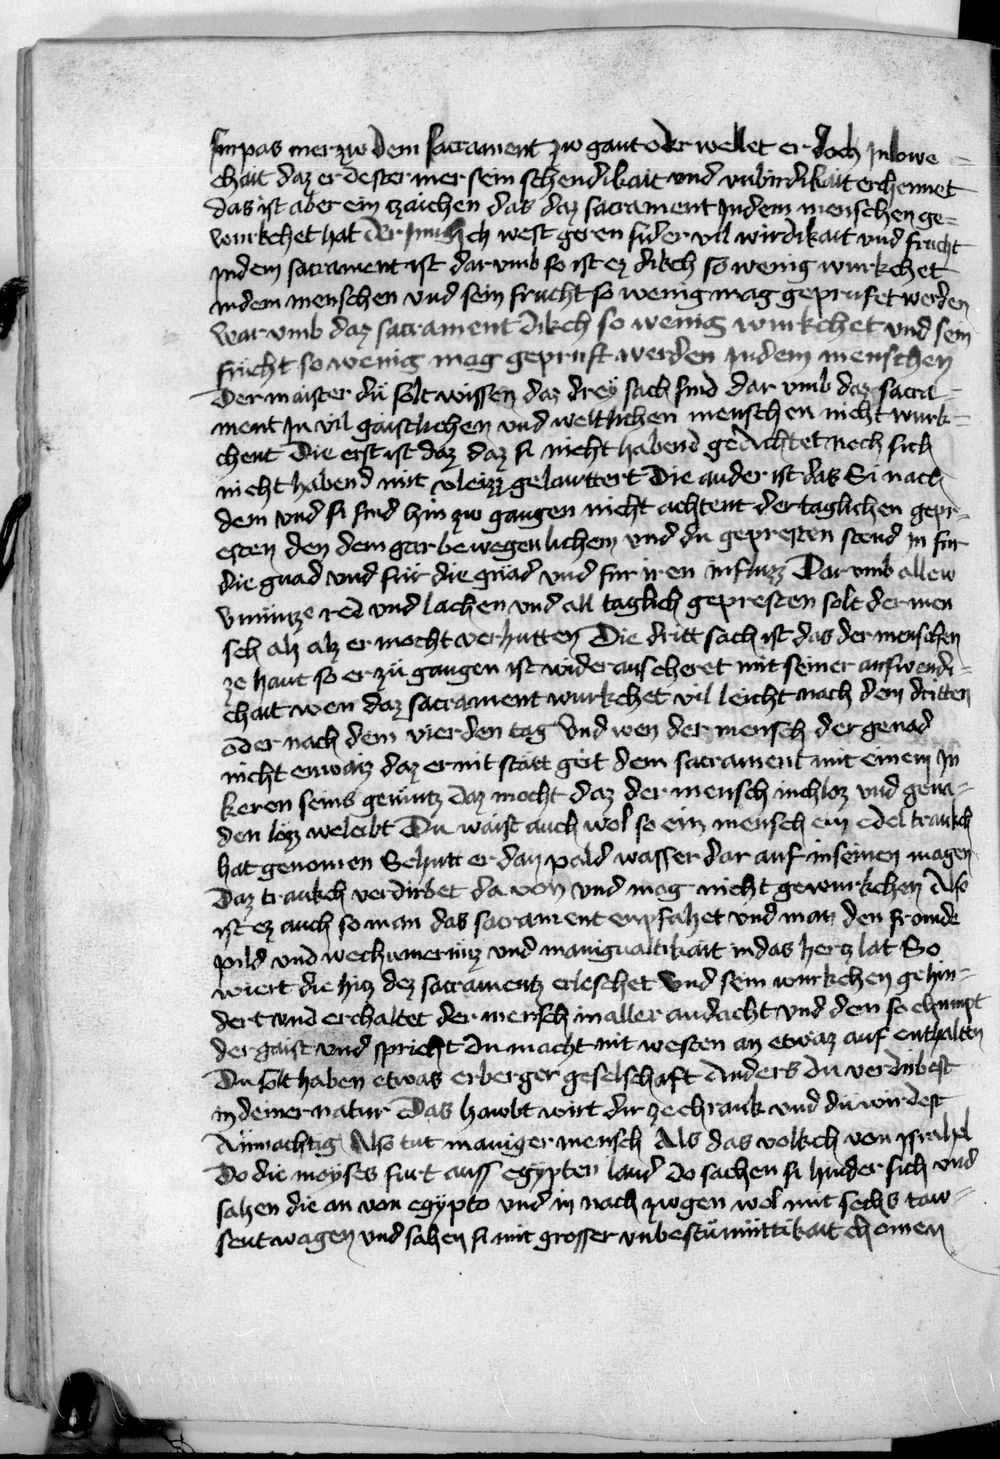 pas mer zw dem sacrament zw gant oder wellet er doch In lowe=
chait daz er dester mer sein schendikait und unbirdikait erchennet
das ist aber ein tzaichen das daz sacrament In dem menschen ge=
wurkchet hat Der Jung Ich west geren sider vil wirdikait und frucht
In dem sacrament ist dar umb so ist ez dikch so wenig wurkchet
in dem menschen und sein frucht so wenig mag geprufet werden
War umb daz sacrament dikch so wenig wurkchet und sein
frücht so wenig mag gepruft werden In dem menschen
Der maister dü solt wissen daz drey sach sind dar umb daz sacra=
ment In vil gaistlichen und weltlichen menschen nicht wurk=
chent Die erst ist daz daz si nicht habend gedichtet noch sich
nicht habend mit vleizz gelauttert Die ander ist das Si nach
dem und si sind hin zw gangen nicht achtent der taglichen gepr=
esten den dem gar bewegenlichem und di gepresten stend In für
die gnad und für die gnad und für iren influzz Dar umb allew
unnütze red und lachen und all taglich gepresten solt der men
sch alz alz er mocht verhutten Die dritt sach ist das der menschen
ze hant so er zü gangen ist wider auscheret mit seiner auswendi=
chait wen daz sacrament wurkchet vil leicht nach dem dritten
oder nach dem vierden tag Und wen der mensch der genad
nicht enwaiz daz er nit statt geit dem sacrament mit einem In
keren seins gemütz daz mocht daz der mensch ruchloz und gena=
den lozz beleibt Du waist auch wol so ein mensch ein edel trankch
hat genomen Schutt er dan pald wasser dar auf in seinen magen
Daz trankch verdirbet da von und mag nicht gewurkchen Also
ist ez auch so man das sacrament enpfahet und man den fromde
pild und wechumernüz und manigualtikait in das hertz lat So
wiert die hitz dez sacramentz erleschet Und sein wurkchen gehin=
dert und erchaltet der mensch in aller andacht und den so chumpt
der gaist und spricht du macht nit westen an etwaz auf enthalten
Du solt haben etwas erberger geselschaft Anders du verdirbest
in deiner natur Das hawbt wirt dir ze chrank und dü wirdest
Anmachtig Also tut maniger mensch Als das volkch von ysrahel
Do die moyses furt auss egypten land do sachen si hinder sich und
sahen die an von egypto und in nach zugen wol mit sechs taw=
sent wagen und sahen si mit grosser unbestümüttikait chomen